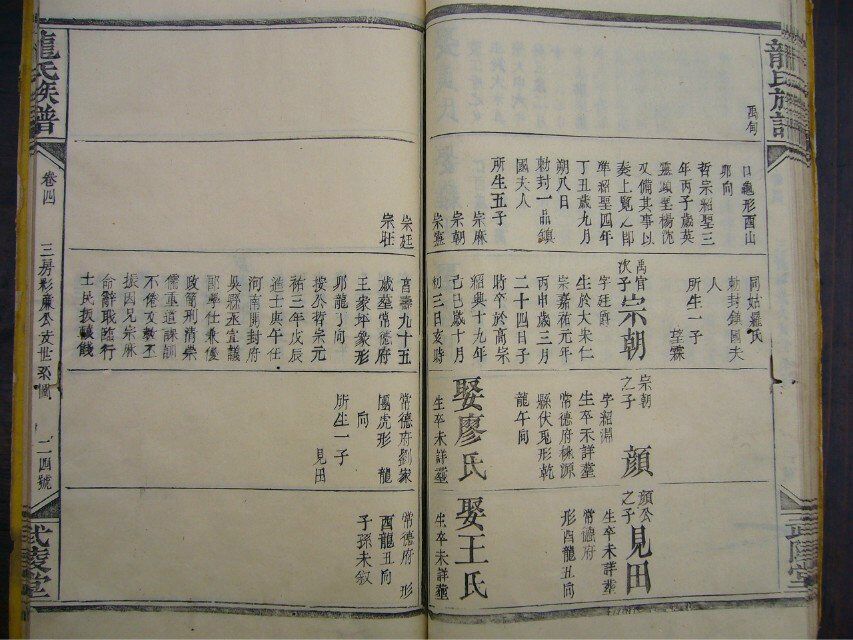 龍氏族譜
禹甸
口龜形酉山
卯向
哲宗紹聖三
年丙子歲英
靈顯至楊沇
又備其事以
奏上覽之即
準紹聖四年
丁丑歲九月
朔八日
勅封一品鎮
國夫人
所生五子
宗麻
宗朝
宗憲
宗廷
宗旺
同姑羅氏
勅封鎮國夫
人
所生一子
莖霖
禹官
次子
宗朝
字廷爵
生於大宋仁
宗嘉祐元年
丙申歲三月
二十四日子
時卒於高宗
紹興十九年
己巳歲十月
初三日亥時
享壽九十五
歲墓常德府
王家坪象形
卯龍丁向
按公哲宗元
祐三年戊辰
進士庚午任
河南開封府
吳縣丞宣議
郎學仕兼優
政簡刑清崇
儒重道課訓
不倦文教丕
振因見宗麻
命辭職臨行
士民扳轅餞
宗朝
之子
顏
字紹淵
生卒未詳墓
常德府桃源
縣伏兎形乾
龍午向
娶廖氏
生卒未詳墓
常德府劉家
團虎形 龍
向
所生一子
見田
顏公
之子
見田
生卒未詳墓
常德府
形酉龍丑向
娶王氏
生卒未詳墓
常德府 形
酉龍丑向
子孫未敘
武陵堂
龍氏族譜
卷四
三房彭廉公支世系圖
二四號
武陵堂